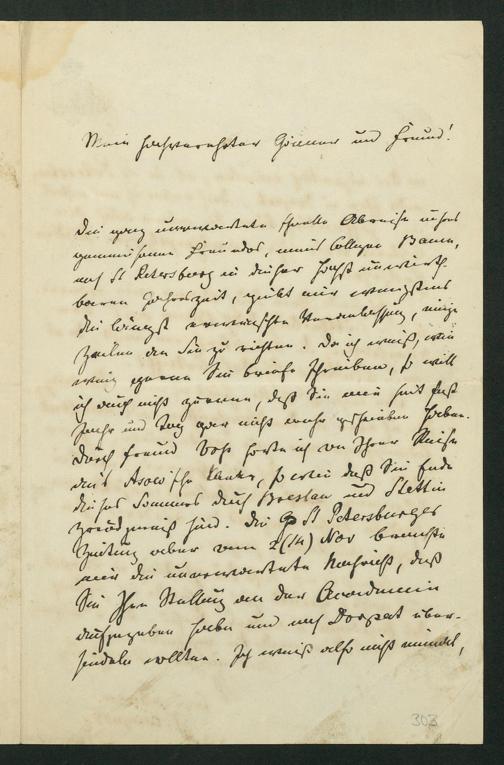 Mein hochverehrter Gönner und Freund!
Die ganz unerwartete schnelle Abreise unseres
gemeinsamen Freundes, meines Collegen Baum,
nach St Petersburg in dieser höchst unwirth-
baren Jahreszeit, giebt mir wenigstens
die längst erwünschte Veranlassung, einige
Zeilen an Sie zu richten. Da ich weiß, wie
wenig gerne Sie Briefe schreiben, so will
ich auch nicht zürnen, daß Sie mir seit fast
Jahr und Tag gar nicht mehr geschrieben haben.
Durch Freund Voss hörte ich von Ihrer Reise
ins Asow'sche, so wie daß Sie Ende
dieses Sommers durch Breslau und Stettin
gereist sind. Die St Petersburger
Zeitung aber vom 2 (14) Nov brachte
mir die unerwartete Nachricht, daß
Sie Ihre Stellung an der Academie
aufgegeben haben und nach Dorpat über-
siedeln wollten. Ich weiß also nicht einmal,
303